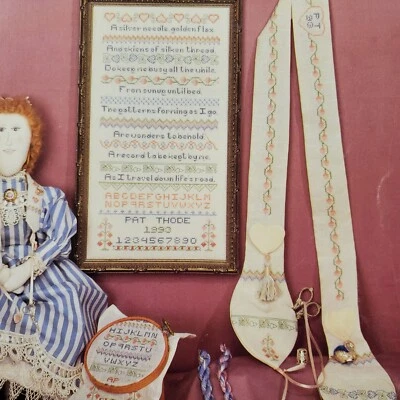 A silver needle, golden floss
And skiens of silken thread.
Do keep me busy all the while
From sunup until bed.
The patterns forming as I go
Are wonders to behold
A record to be kept by me
As I travel down life's road.
ABCDEFGHIJKLM
NOPQRSTUVWXYZ
PAT THODE
1990
1234567890
PT
90
HIJKLMN
OPQRSTU
VWXYZ